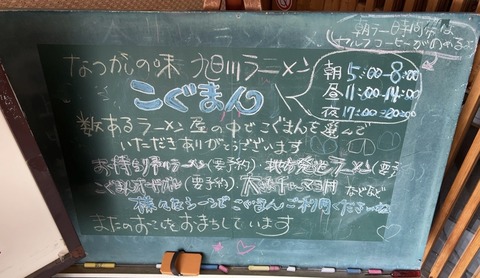 朝ラー時間帯は
セルフコーヒーがのめるよ
なつかしの味 旭川ラーメン
こぐまん
朝5:00-8:00
昼11:00-14:00
夜17:00-20:00
数あるラーメン屋の中でこぐまんを選んで
いただきありがとうございます
お持ち帰りラーメン(要予約)・地方発送ラーメン(要予
こぐまんオードブル(要予約)
などなど
様々なシーンでこぐまんご利用くださいね
またのおこしをおまちしています